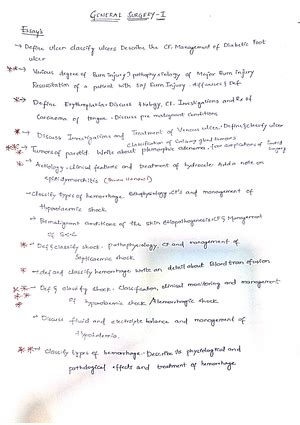 GENERAL SURGERY-I
Essays
→ Define ulcer classify ulcers Describe the CF. Management of Diabetic Foot
ulcer
**→ Various degree of Burn injury? pathophysiology of Major Burn injury
Resuscitation of a patient with Burn injury.
*→ Define Erythroplakia. Discuss Aetiology, CF, Investigations and Rx of
Carcinoma of tongue. Discuss pre malignant conditions
*→ Discuss Investigations and Treatment of Venous ulcer. Define & classify ulcer
classification of Salivary gland tumors
**→ Tumors of parotid. Write about pleomorphic adenoma. complications of parotid
surgery
*→ Aetiology, clinical features and treatment of hydrocele. Add a note on
epididymorchitis
→ Classify types of hemorrhage. pathophysiology, CF's and management of
Hypovolaemic shock.
→ Premalignant conditions of the skin Etiopathogenesis CF & Management
of SCC
*→ Def & classify shock. pathophysiology, CF and management of
Septicaemic shock.
*→ def and classify hemorrhage write in detail about Blood transfusion
**→ Def & classify shock. Classification, clinical monitoring and management
of hypovolaemic shock / Hemorrhagic shock
→ Discuss fluid and electrolyte balance and management of
**→ Classify types of hemorrhage. Describe its physiological and
pathological effects and treatment of hemorrhage